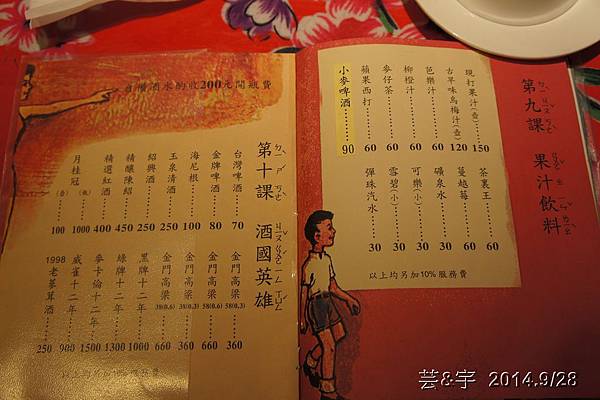 第九課 果汁飲料
ㄉㄧˋ ㄐㄧㄡˇ ㄎㄜˋ ㄍㄨㄛˇ ㄓ ㄧㄣˇ ㄌㄧㄠˋ
現打果汁(壺)……150
古早味烏梅汁(壺)……120
芭樂汁……60
柳橙汁……60
麥仔茶……60
蘋果西打……60
小麥啤酒……90
茶裏王……60
蔓越莓……60
礦泉水……30
可樂(小)……30
雪碧(小)……30
彈珠汽水……30
以上均另加10%服務費
自備酒水酌收200元開瓶費
第十課 酒國英雄
ㄉㄧˋ ㄕˊ ㄎㄜˋ ㄐㄧㄡˇ ㄍㄨㄛˊ ㄧㄥ ㄒㄩㄥˊ
台灣啤酒……70
金牌啤酒……80
海尼根……100
玉泉清酒……250
紹興酒……250
精釀陳紹……450
精選紅酒……400
月桂冠 (瓶)1000 (壺)100
金門高梁 58(0.3)……360
金門高梁 58(0.6)……660
金門高梁 38(0.3)……360
金門高梁 38(0.6)……660
黑牌十二年……1000
綠牌十二年……1300
麥卡倫十二年……1500
威雀十二年……900
1998老蔘茸酒……250
以上均另加10%服務費
芸&宇 2014.9/28